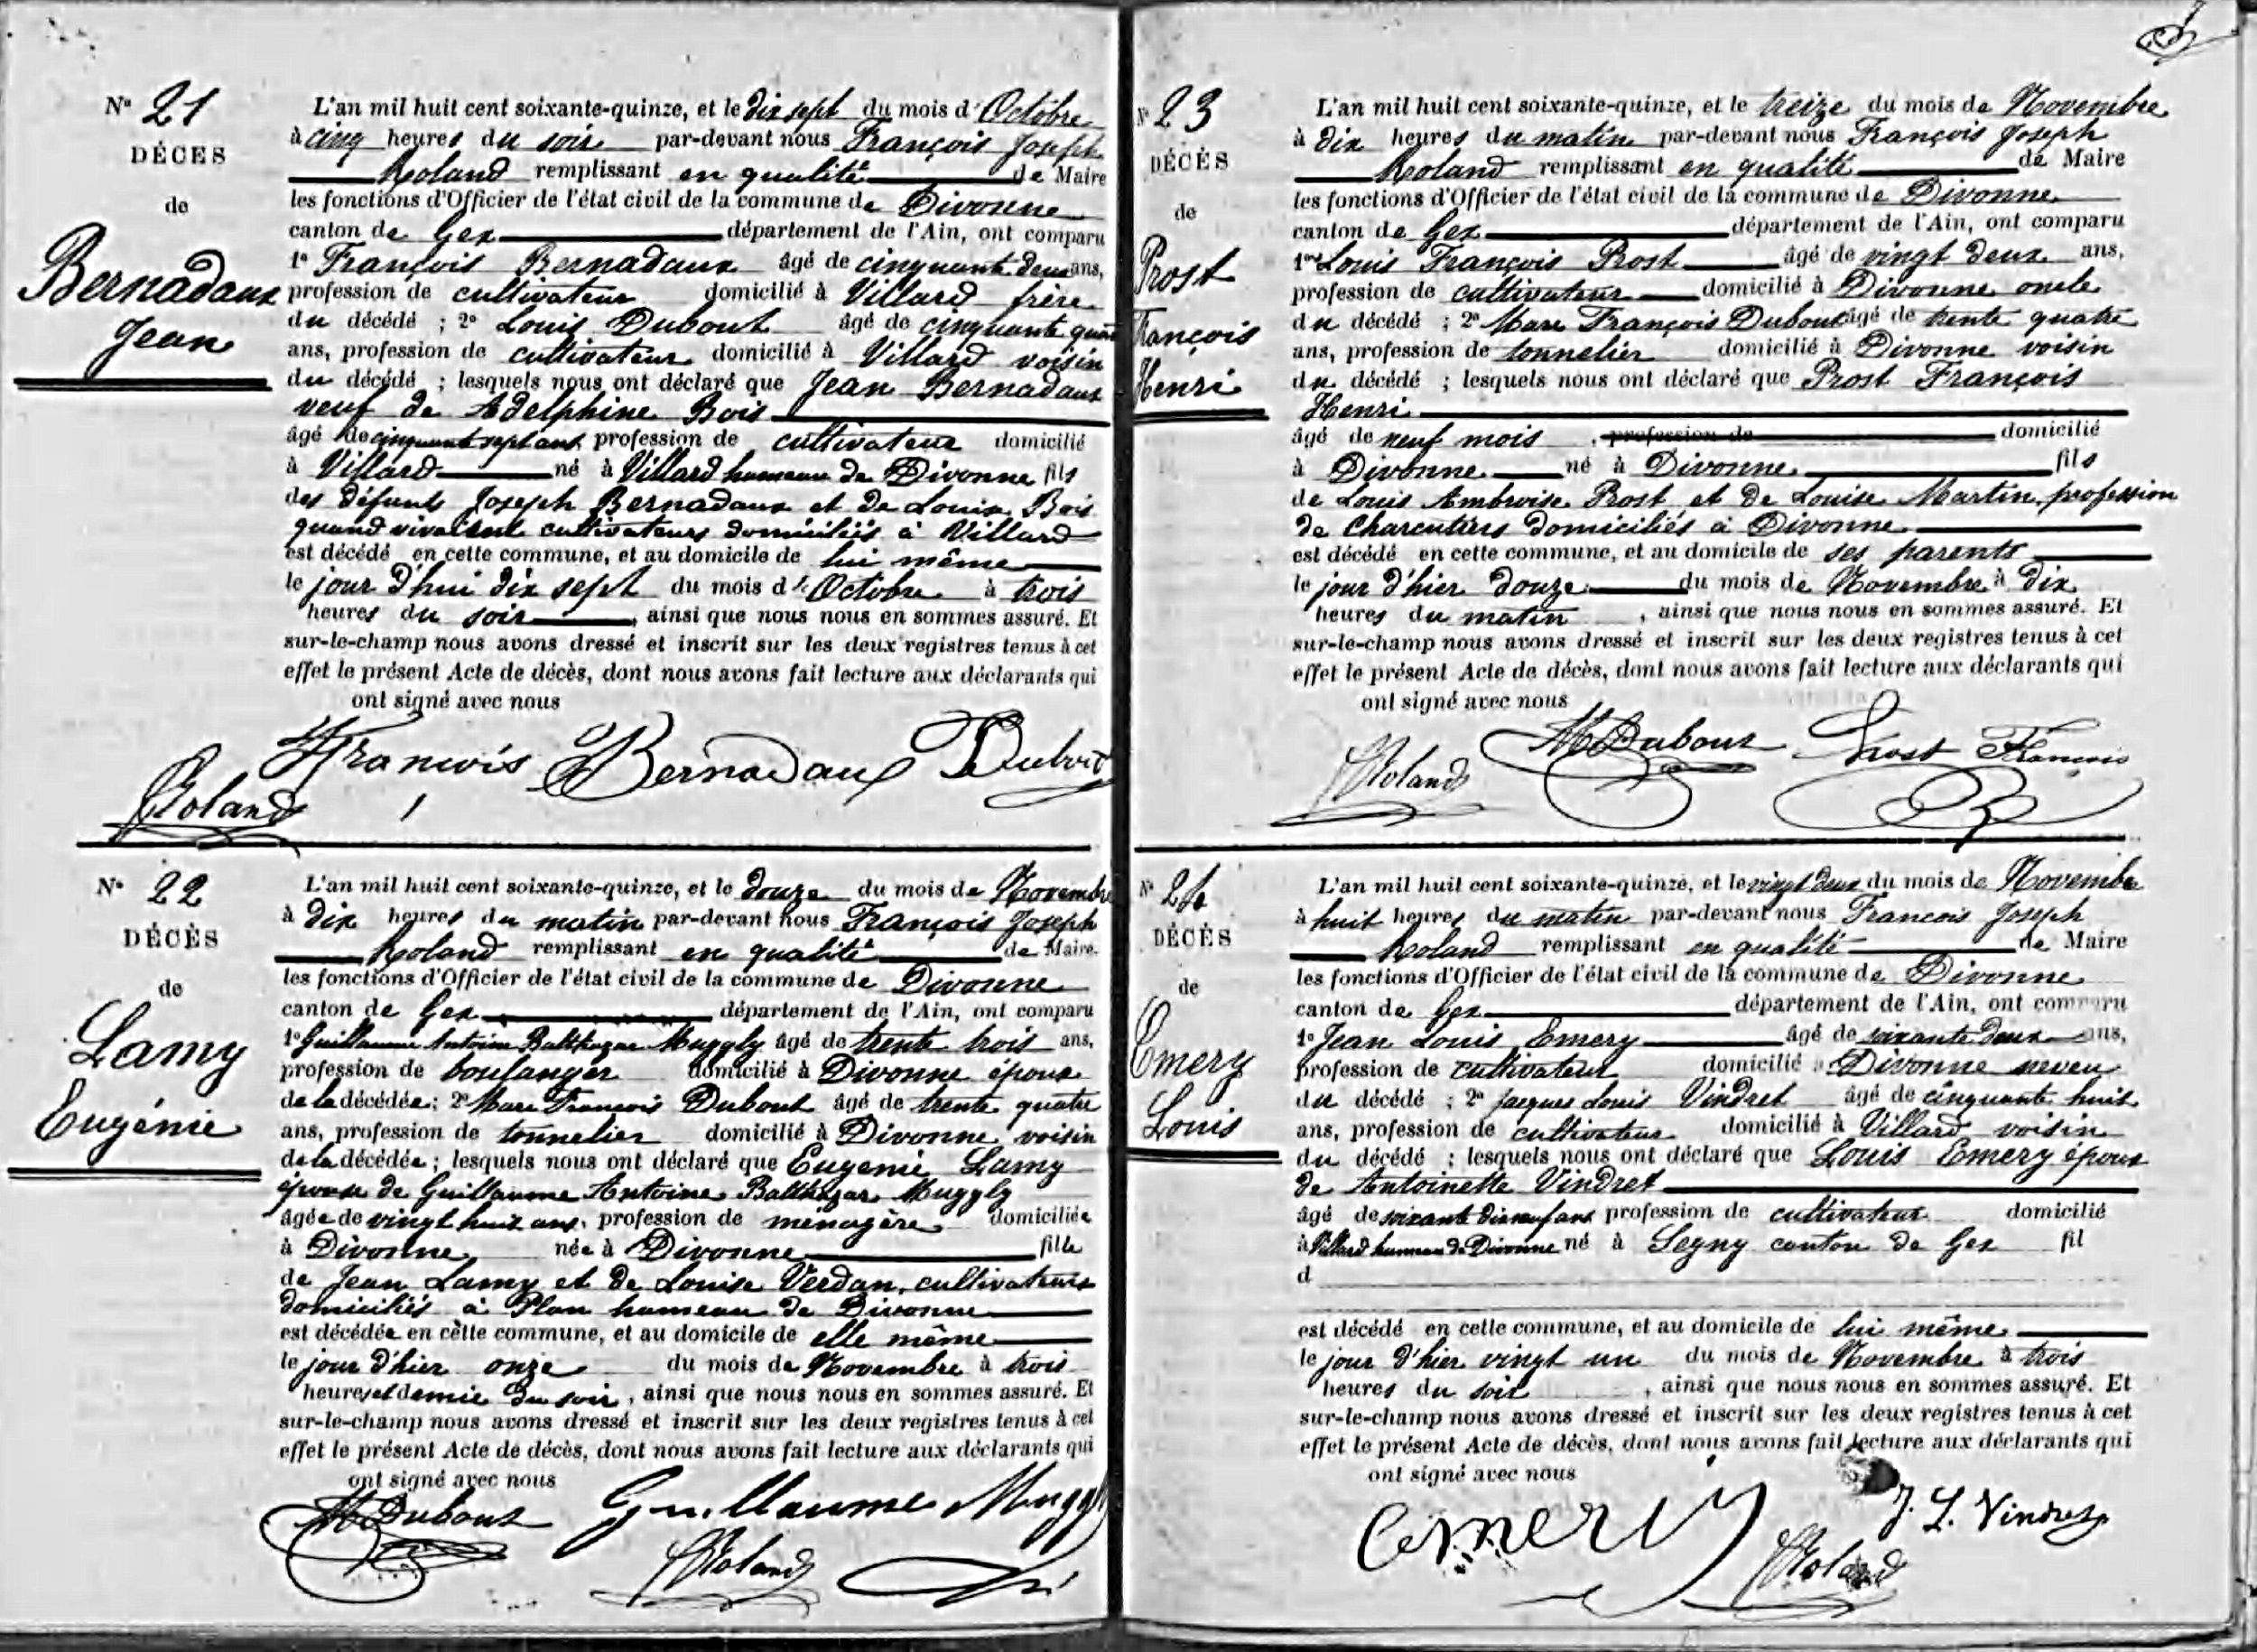 N° 21
DÉCES
de
Bernadaux
Jean
L'an mil huit cent soixante-quinze, et le dix sept du mois d'Octobre
à cinq heures du soir par-devant nous François Joseph
Roland remplissant en qualité de Maire
les fonctions d'Officier de l'état civil de la commune de Divonne
canton de Gex département de l'Ain, ont comparu
1° François Bernadaux âgé de cinquante deux ans,
profession de cultivateur domicilié à Villard frère
du décédé ; 2° Louis Dubout âgé de cinquante quatre
ans, profession de cultivateur domicilié à Villard voisin
du décédé ; lesquels nous ont déclaré que Jean Bernadaux
veuf de Adelphine Bois
âgé de cinquante sept ans, profession de cultivateur domicilié
à Villard né à Villard hameau de Divonne fils
des défunts Joseph Bernadaux et de Louise Bois
quand vivaient cultivateurs domiciliés à Villard
est décédé en cette commune, et au domicile de lui même
le jour d'hui dix sept du mois d'Octobre à trois
heures du soir, ainsi que nous nous en sommes assuré. Et
sur-le-champ nous avons dressé et inscrit sur les deux registres tenus à cet
effet le présent Acte de décès, dont nous avons fait lecture aux déclarants qui
ont signé avec nous
François Bernadaux Dubout
Roland
N° 22
DÉCÈS
de
Lamy
Eugénie
L'an mil huit cent soixante-quinze, et le douze du mois de Novembre
à dix heures du matin par-devant nous François Joseph
Roland remplissant en qualité de Maire
les fonctions d'Officier de l'état civil de la commune de Divonne
canton de Gex département de l'Ain, ont comparu
1° Guillaume Antoine Balthazar Muggly âgé de trente trois ans,
profession de boulanger domicilié à Divonne époux
de la décédée ; 2° Marc François Dubout âgé de trente quatre
ans, profession de tonnelier domicilié à Divonne voisin
de la décédée ; lesquels nous ont déclaré que Eugenie Lamy
épouse de Guillaume Antoine Balthazar Muggly
âgée de vingt huit ans, profession de ménagère domiciliée
à Divonne née à Divonne fille
de Jean Lamy et de Louise Verdan, cultivateurs
domiciliés à Plan hameau de Divonne
est décédée en cette commune, et au domicile de elle même
le jour d'hier onze du mois de Novembre à trois
heures et demie du soir, ainsi que nous nous en sommes assuré. Et
sur-le-champ nous avons dressé et inscrit sur les deux registres tenus à cet
effet le présent Acte de décès, dont nous avons fait lecture aux déclarants qui
ont signé avec nous
M Dubout Guillaume Muggly
Roland
N° 23
DÉCÈS
de
Prost
François
Henri
L'an mil huit cent soixante-quinze, et le treize du mois de Novembre
à dix heures du matin par-devant nous François Joseph
Roland remplissant en qualité de Maire
les fonctions d'Officier de l'état civil de la commune de Divonne
canton de Gex département de l'Ain, ont comparu
1° Louis François Prost âgé de vingt deux ans,
profession de cultivateur domicilié à Divonne oncle
du décédé ; 2° Marc François Dubout âgé de trente quatre
ans, profession de tonnelier domicilié à Divonne voisin
du décédé ; lesquels nous ont déclaré que Prost François
Henri
âgé de neuf mois, profession de domicilié
à Divonne né à Divonne fils
de Louis Ambroise Prost et de Louise Martin, profession
de Charcutiers domiciliés à Divonne
est décédé en cette commune, et au domicile de ses parents
le jour d'hier douze du mois de Novembre à dix
heures du matin, ainsi que nous nous en sommes assuré. Et
sur-le-champ nous avons dressé et inscrit sur les deux registres tenus à cet
effet le présent Acte de décès, dont nous avons fait lecture aux déclarants qui
ont signé avec nous
Roland M Dubout Prost François
N° 24
DÉCÈS
de
Emery
Louis
L'an mil huit cent soixante-quinze, et le vingt deux du mois de Novembre
à huit heures du matin par-devant nous Francois Joseph
Roland remplissant en qualité de Maire
les fonctions d'Officier de l'état civil de la commune de Divonne
canton de Gex département de l'Ain, ont comparu
1° Jean Louis Emery âgé de soixante deux ans,
profession de cultivateur domicilié à Divonne neveu
du décédé ; 2° Jacques Louis Vindret âgé de cinquante huit
ans, profession de cultivateur domicilié à Villard voisin
du décédé ; lesquels nous ont déclaré que Louis Emery époux
de Antoinette Vindret
âgé de soixante dix neuf ans profession de cultivateur domicilié
à Villard hameau de Divonne né à Segny canton de Gex fil
d
est décédé en cette commune, et au domicile de lui même
le jour d'hier vingt un du mois de Novembre à trois
heures du soir, ainsi que nous nous en sommes assuré. Et
sur-le-champ nous avons dressé et inscrit sur les deux registres tenus à cet
effet le présent Acte de décès, dont nous avons fait lecture aux déclarants qui
ont signé avec nous
Emery J. L. Vindret
Roland